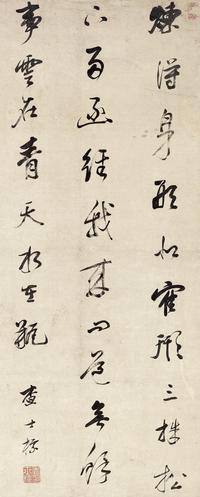 煉得身形似鶴形三株松
下两函經我来問道無餘
事雲在青天水在瓶
查士標